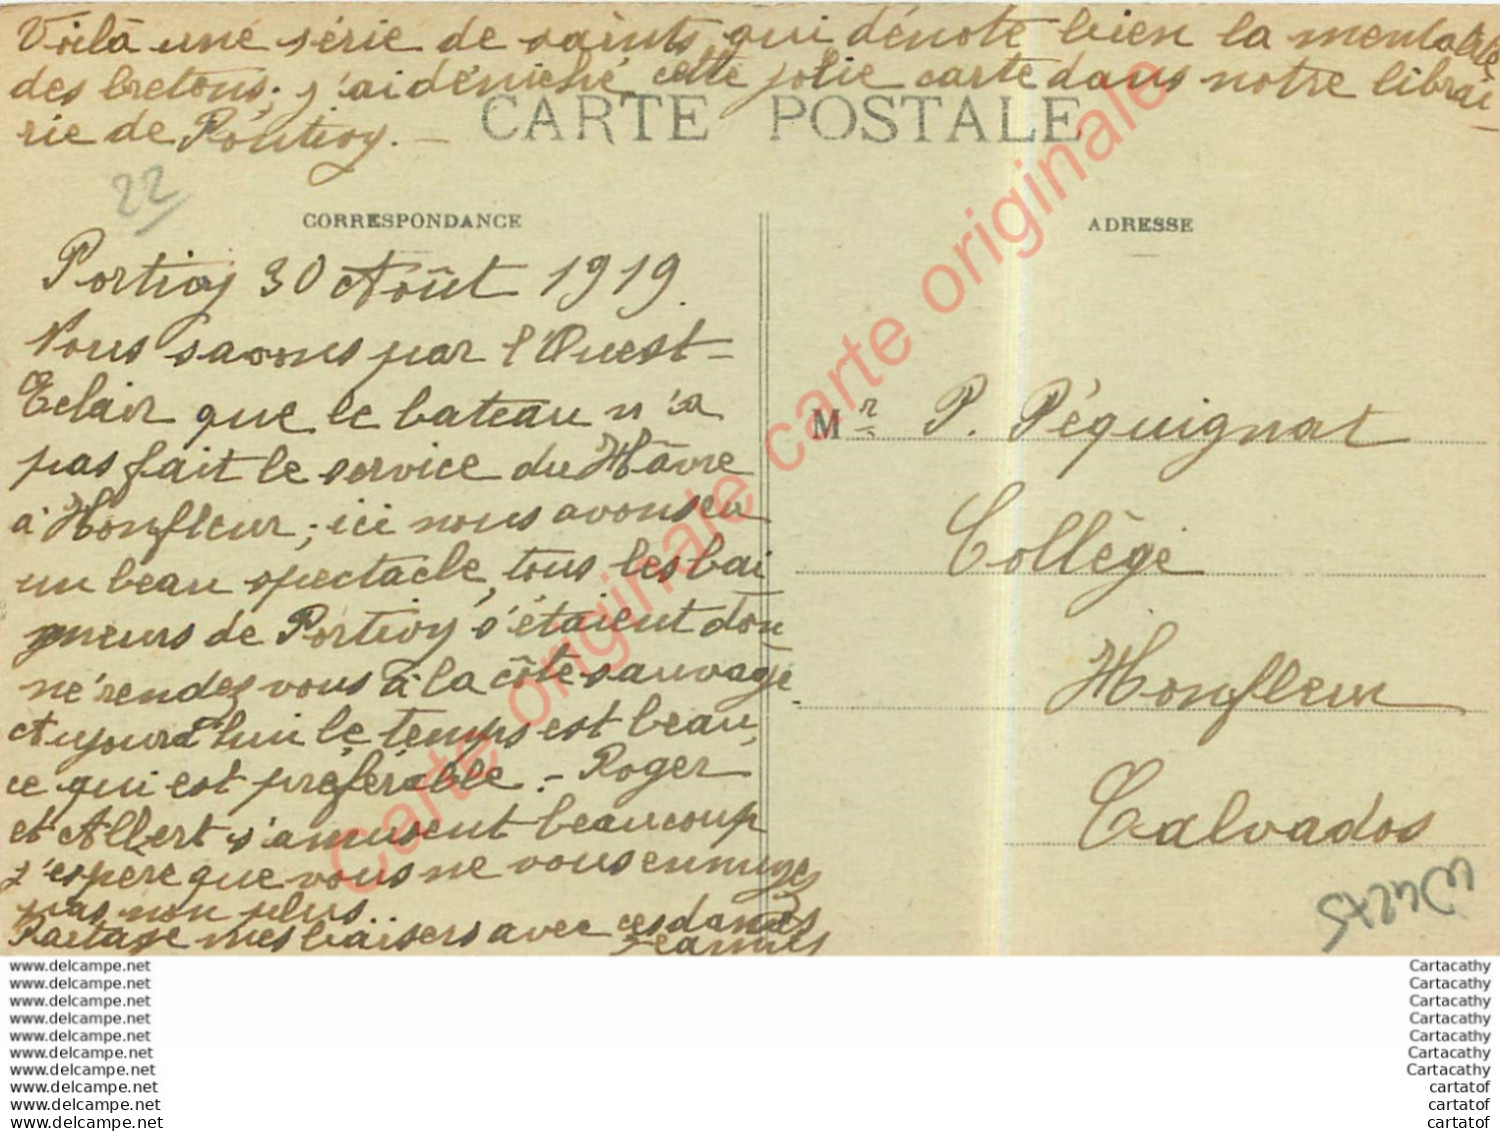 Voilà une série de saints qui dénote bien la mentalité
des bretons; j'ai déniché cette jolie carte dans notre librai-
rie de Portivy. —
CARTE POSTALE
22
CORRESPONDANCE
Portivy 30 Août 1919.
Nous savons par l'Ouest-
Eclair que le bateau n'a
pas fait le service du Hâvre
à Honfleur; ici nous avons eu
un beau spectacle, tous les bai
gneurs de Portivy s'étaient don
né rendez vous à la côte sauvage.
Aujourd'hui le temps est beau,
ce qui est préférable. – Roger
et Albert s'amusent beaucoup
j'espère que vous ne vous ennuyez
pas non plus.
Partage mes baisers avec ces dames
ADRESSE
Mr P. Péquignat
Collège
Honfleur
Calvados
Carte originale carte originale carte originale
www.delcampe.net
www.delcampe.net
www.delcampe.net
www.delcampe.net
www.delcampe.net
www.delcampe.net
www.delcampe.net
www.delcampe.net
www.delcampe.net
www.delcampe.net
Cartacathy
Cartacathy
Cartacathy
Cartacathy
Cartacathy
Cartacathy
Cartacathy
cartatof
cartatof
cartatof